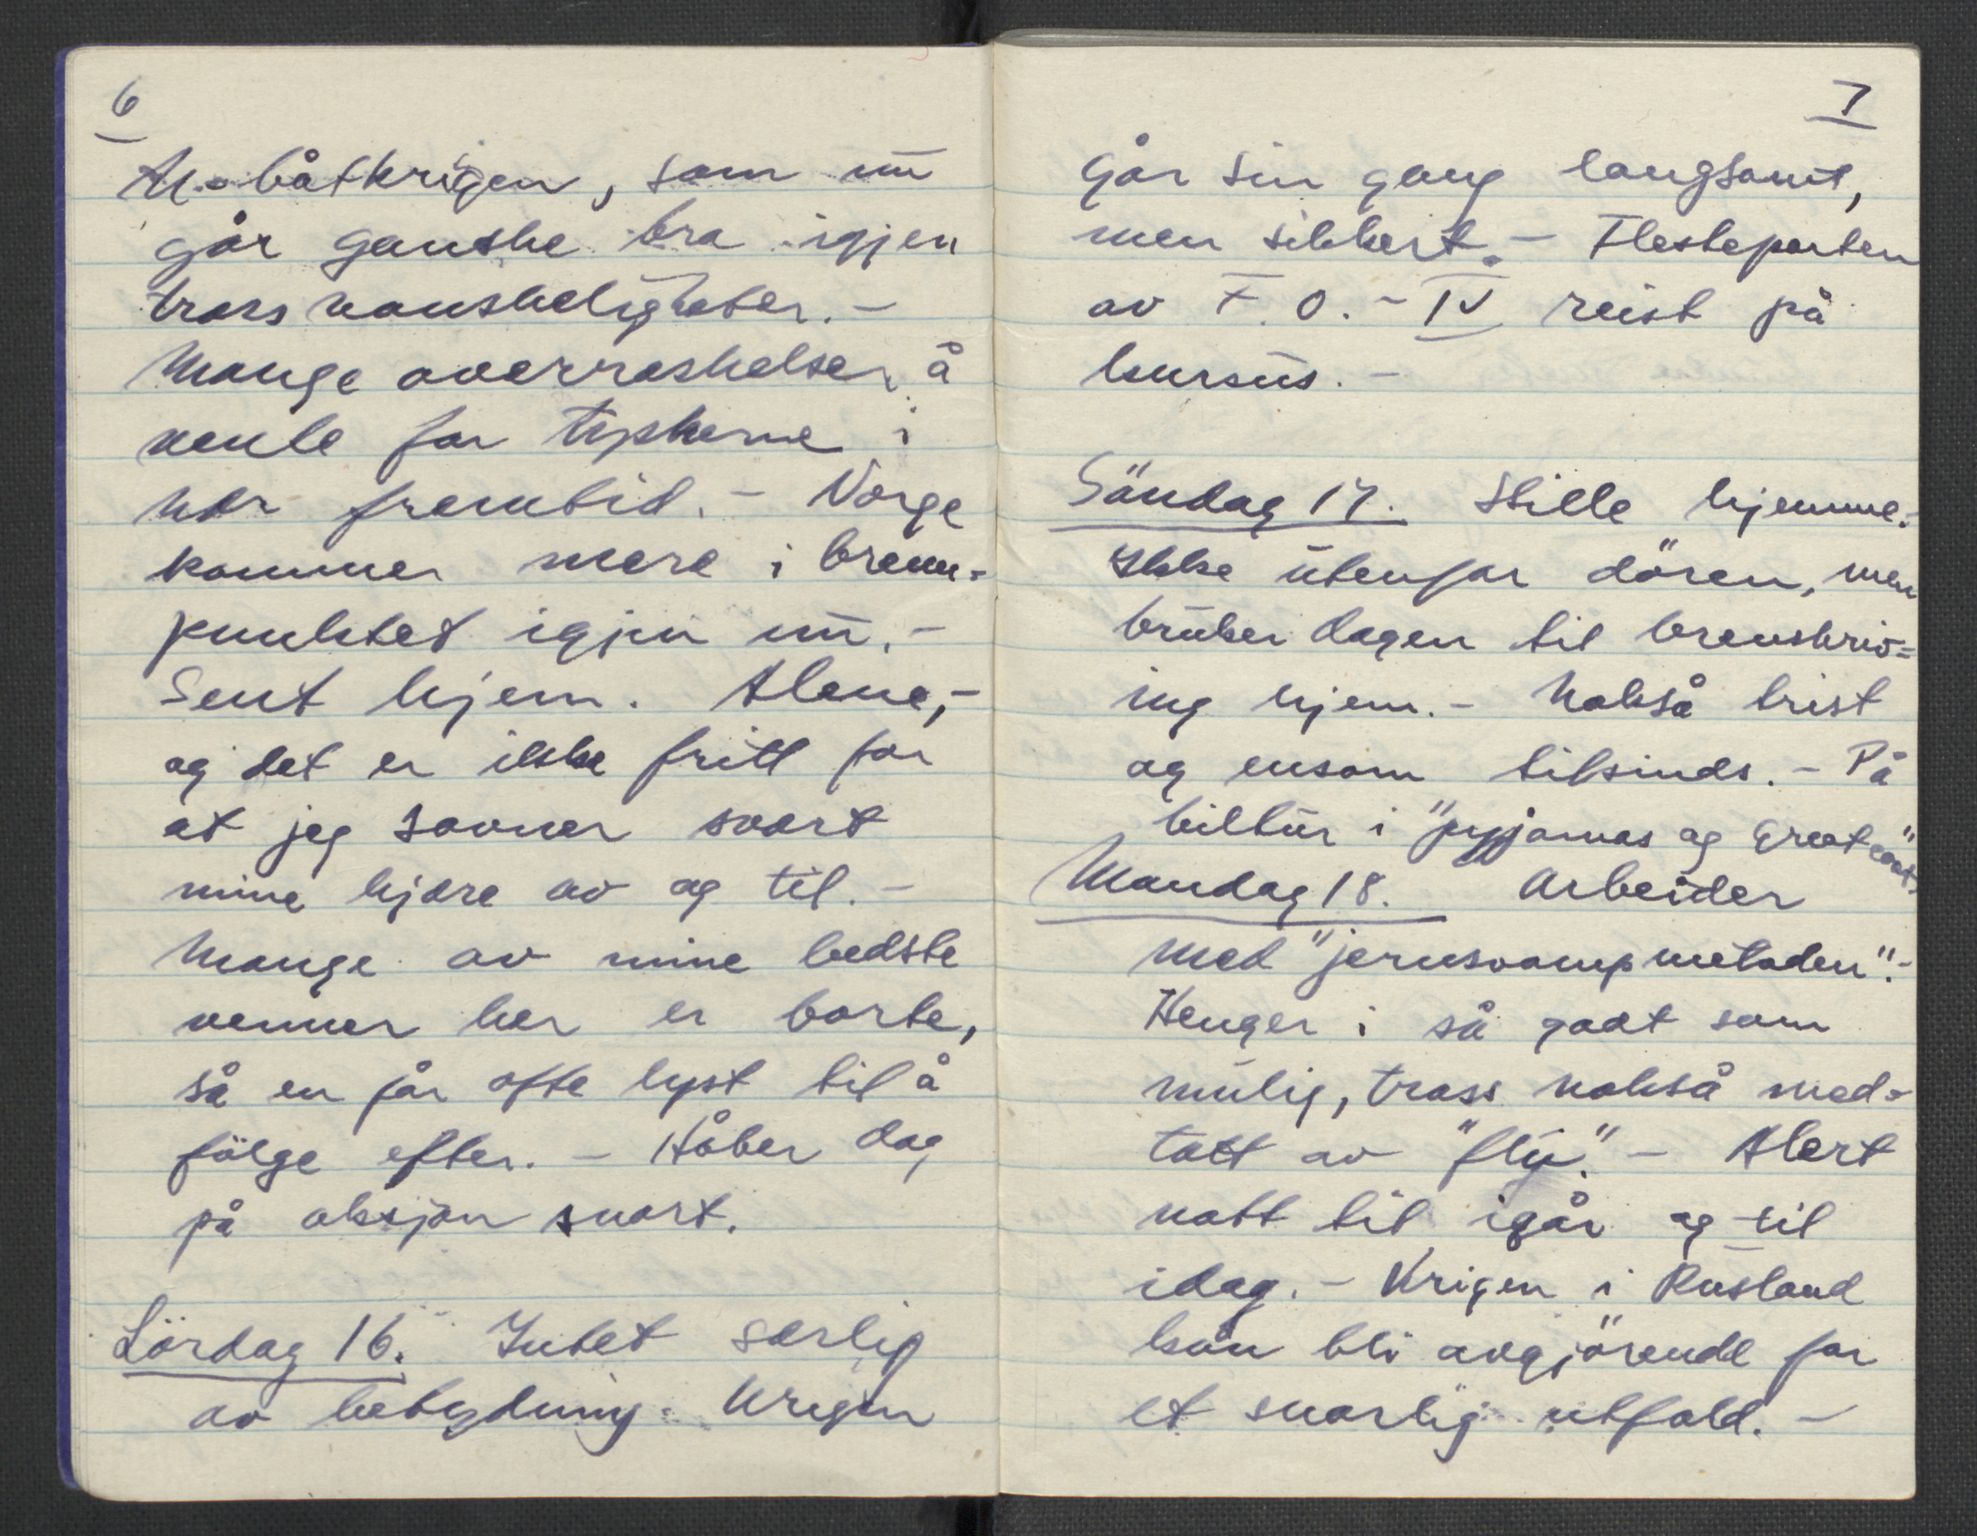 6
U-båtkrigen, som nu
går ganske bra igjen
tross vanskeligheter. -
Mange overraskelser å
vente for tyskerne i
nær fremtid. - Norge
kommer mere i brenn-
punktet igjen nu. -
Sent hjem. Alene, -
og det er ikke fritt for
at jeg savner svært
mine kjære av og til. -
Mange av mine bedste
venner her er borte,
så en får ofte lyst til å
fölge efter. - Håber dog
på aksjon snart.
Lördag 16. Intet særlig
av betydning. Krigen
7
går sin gang langsomt,
men sikkert. - Flesteparten
av F.O. - IV reist på
kursus. -
Söndag 17. Stille hjemme.
Ikke utenfor dören, men
bruker dagen til brevskriv=
ing hjem. - Nokså trist
og ensom tilsinds. - På
biltur i "pyjamas og greatcoat".
Mandag 18. Arbeider
med "jernsvampmetoden". -
Henger i så godt som
mulig, tross nokså med-
tatt av "fly". - Alert
natt til igår og til
idag. - Krigen i Rusland
kan bli avgjörende for
et snarlig utfald. -